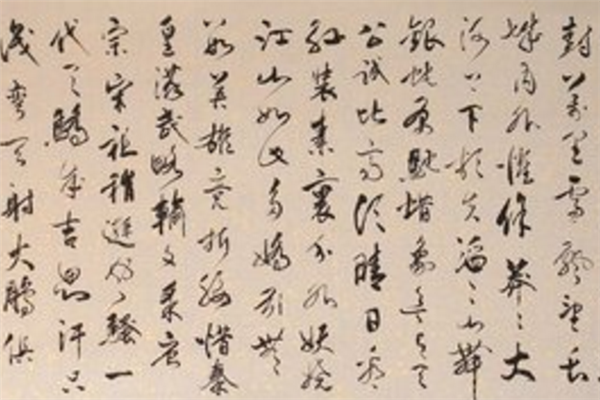 封萬里雪飘望长
城内外惟余莽々大
河上下顿失滔々山舞
銀蛇原馳蜡象欲与天
公試比高须晴日看
红装素裹分外妖娆
江山如此多嬌引無
数英雄竞折腰惜秦
皇漢武略輸文采唐
宗宋祖稍遜风騷一
代天驕成吉思汗只
识弯弓射大鵰俱